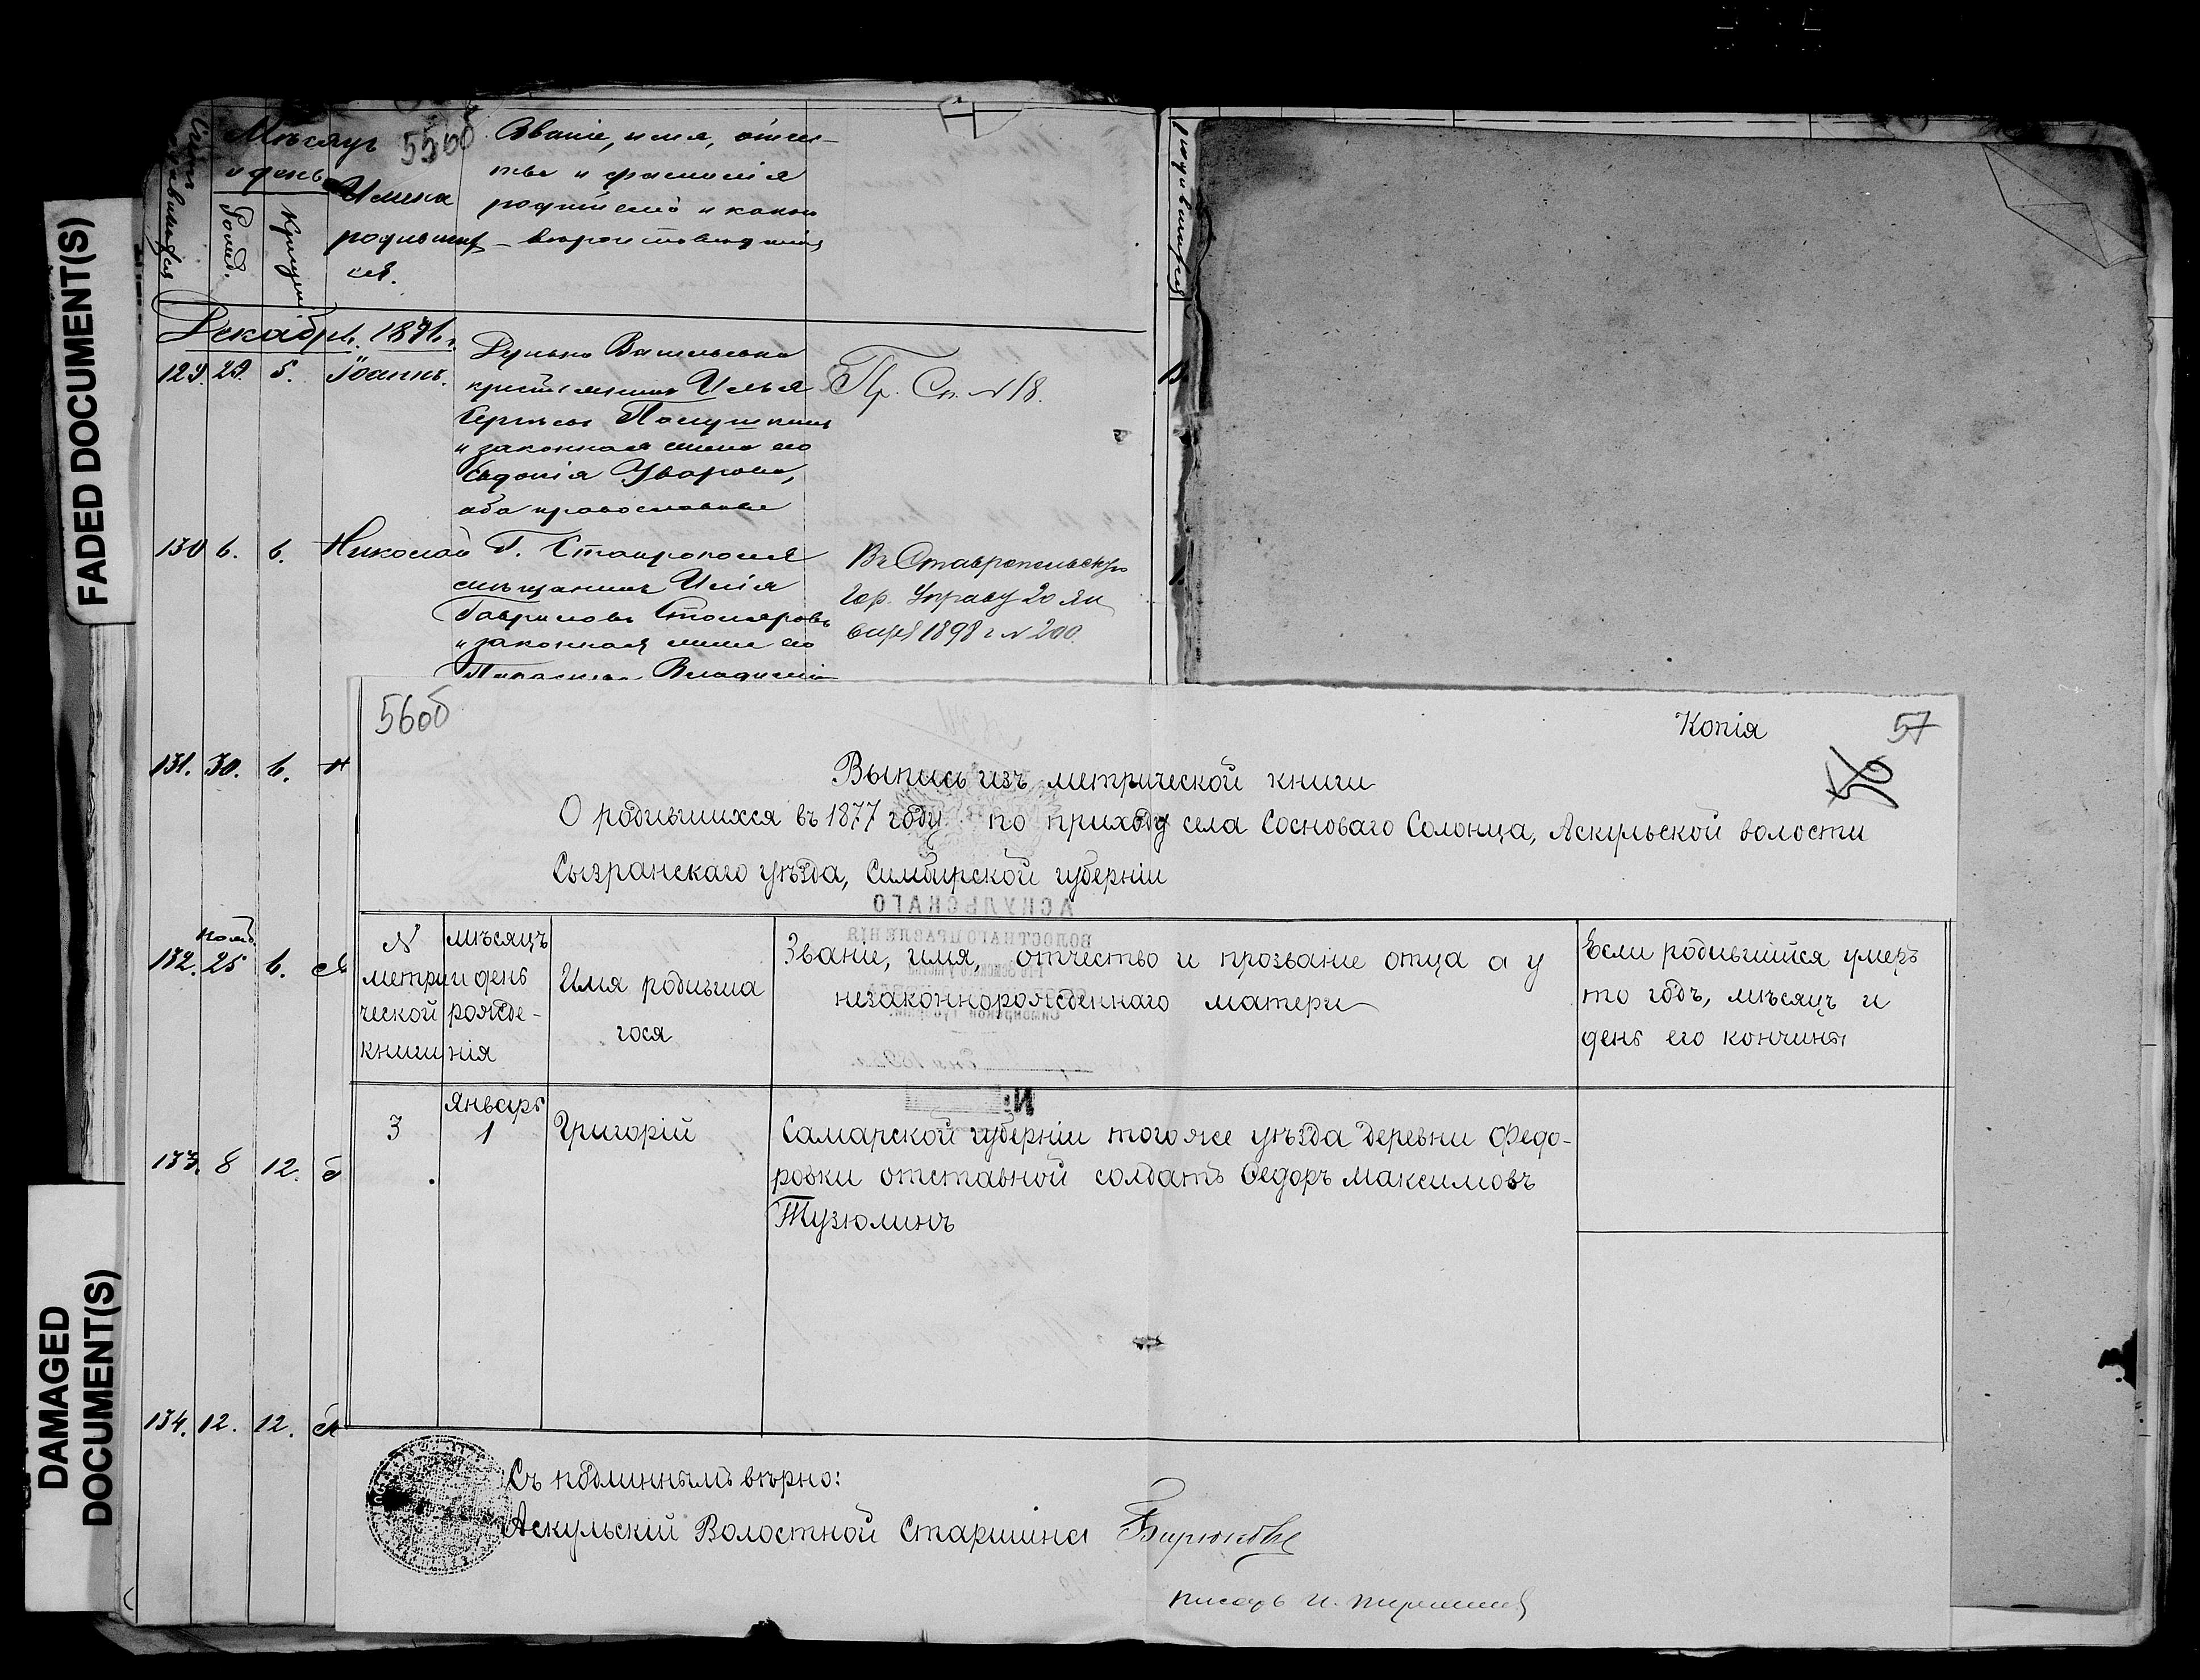 FADED DOCUMENT(S)
DAMAGED
DOCUMENT(S)
Мѣсяцъ
и день
Рожд.
Крещен
55об
Имена
родивших
ся.
Званіе, имя, отче-
ство и фамилія
родителей и какого
вѣроисповѣданія
Декабрь 1876 г.
129. 29. 5. Іоаннъ.
крестьянинъ Илья
Сергѣевъ
и законная жена его
Евдокія Уварова,
оба православные
Пр. Сп. № 18.
130 6. 6. Николай
Г. Ставрополя
мѣщанинъ Илія
Гавриловъ Столяровъ
и законная жена его
Въ Ставропольскую
Гор. Управу 20 Ян
варя 1898 г № 200.
131. 30. 6. Н
нояб.
132. 25 6.
133. 8 12.
134. 12. 12.
56об
Копія
57
56
Выпись изъ метрической книги
О родившихся въ 1877 году по приходу села Сосноваго Солонца, Аскульской волости
Сызранскаго уѣзда, Симбирской губерніи
АСКУЛЬСКАГО
ВОЛОСТНАГО ПРАВЛЕНІЯ
№
метри
ческой
книги
мѣсяцъ
и день
рожде-
нія
Имя родивша
гося
Званіе, имя, отчество и прозваніе отца а у
незаконнорожденнаго матери
Если родившійся умеръ
то годъ, мѣсяцъ и
день его кончины
3
Январь
1
Григорій
Самарской губерніи того же уѣзда деревни Федо-
ровки отставной солдатъ Ѳедоръ Максимовъ
Тузюлинъ
Съ подлиннымъ вѣрно:
Аскульскій Волостной Старшина Бирюковъ
писарь И.